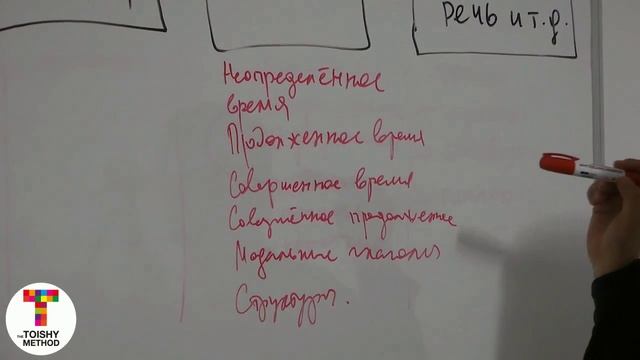 речь и т.д.
Неопределённое
время
Продолженное время
Совершенное время
Совершённое продолженное
Модальные глаголы
Структуры.
THE
TOISHY
METHOD